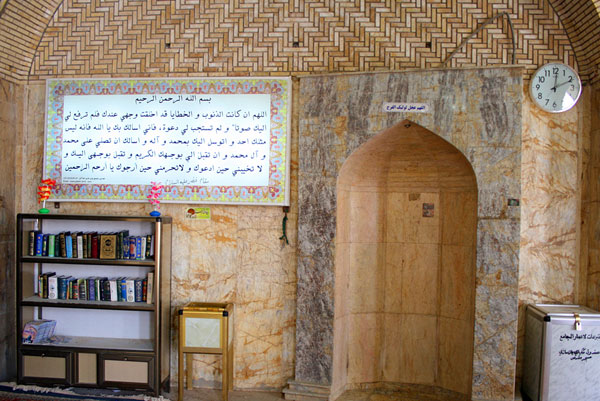 بسم الله الرحمن الرحيم
اللهم ان كانت الذنوب و الخطايا قد اخلقت وجهي عندك فلم ترفع لي
اليك صوتاً و لم تستجب لي دعوة، فاني اسالك بك يا الله فانه ليس
مثلك احد و اتوسل اليك بمحمد و آله و اسالك ان تصلي على محمد
و آل محمد و ان تقبل الي بوجهك الكريم و تقبل بوجهي اليك و
لا تخيبني حين ادعوك و لا تحرمني حين ارجوك يا ارحم الراحمين
اللهم عجل لوليك الفرج
12
1
2
3
4
5
6
7
8
9
10
11
لاعمار الجامع